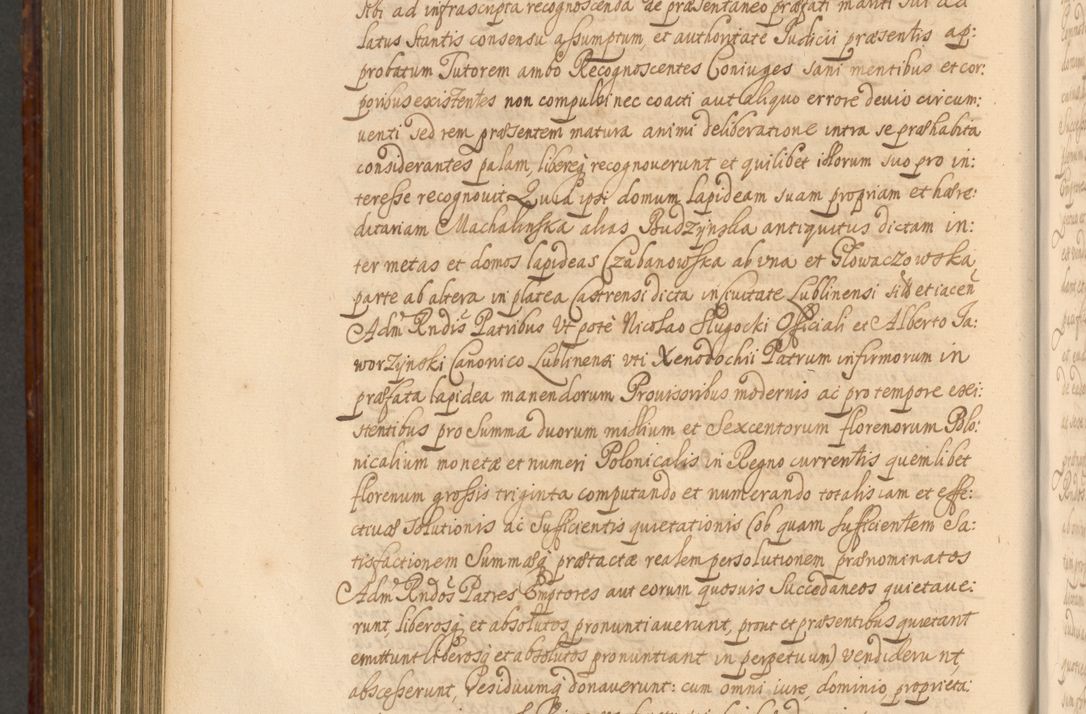 sibi ad infrascripta recognoscenda de præsentaneo præfati mariti sui ad
latus stantis consensu assumptum, et authoritate Iudicii præsentis ap:
probatum Tutorem ambo Recognoscentes Coniuges sani mentibus et cor:
poribus existentes non compulsi nec coacti aut aliquo errore devio circum:
venti sed rem præsentem matura animi deliberatione intra se præhabita
considerantes palam, libereq recognoverunt et quilibet illorum suo pro in:
teresse recognovit Quia ipsi domum lapideam suam propriam et hære:
ditariam Machalinska alias Budzynska antiquitus dictam in:
ter metas et domos lapideas Czabanowska ab una et Głowaczowska
parte ab altera in platea Castrensi dicta in Civitate Lublinensi sit et iacen
Adm Rndis Patribus Ut pote Nicolao Sługocki Officiali et Alberto Ia:
worzynski Canonico Lublinensi uti Xenodochii Patrum infirmorum in
præfata lapidea manendorum Provisoribus modernis ac pro tempore exi:
stentibus pro Summa duorum millium et Sexcentorum florenorum Polo:
nicalium monetæ et numeri Polonicalis in Regno currentis quemlibet
florenum grossis triginta computando et numerando totalis iam et effe:
ctivæ Solutionis ac Sufficientis quietationis (ob quam sufficientem Sa:
tisfactionem Summæq prætactæ realem persolutionem prænominatos
Adm Rndos Patres Emptores aut eorum quosvis Succedaneos quietave:
runt, liberosq, et absolutos pronuntiaverunt, prout et præsentibus quietant
emittunt liberosq et absolutos pronuntiant in perpetuum) vendiderunt,
abscesserunt, Residuumq donaverunt: cum omni iure, dominio, proprieta: